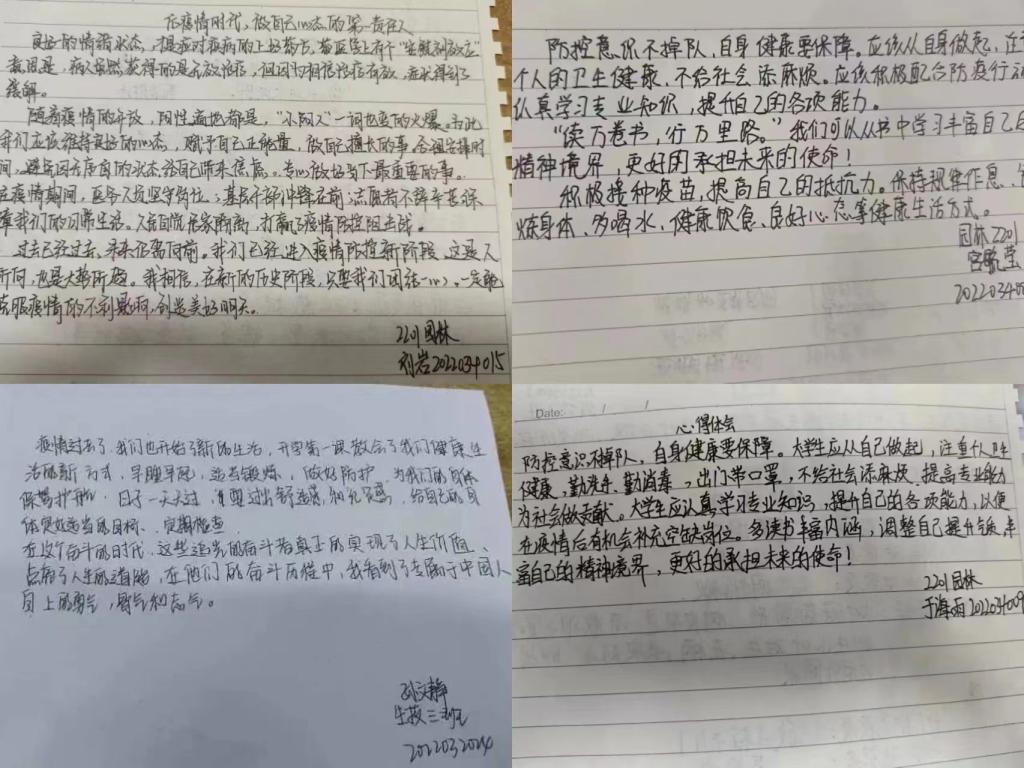 后疫情时代，做自己心态的第一责任人
良好的情绪状态，才是应对疾病的上好药方。
意思是，病人虽然获得的是无效治疗，但因为相信治疗有效，症状得到了
缓解。
随着疫情的开放，阳性遍地都是，“小阳人”一词也变的火爆。为此
我们应该维持良好的心态，赋予自己正能量，做自己擅长的事，合理安排时
间，避免因无所谓的状态给自己带来焦虑。专心做好当下最重要的事。
在疫情期间，医务人员坚守岗位，基层干部冲锋在前，志愿者不辞辛苦保
障我们的日常生活。人民自觉居家隔离，打赢了疫情防控阻击战。
过去已经过去，未来仍需向前。我们已经进入疫情防控新阶段，这是人
所向，也是大势所趋。我相信，在新的历史阶段，只要我们团结一心，一定能
克服疫情的不利影响，创造美好明天。
2201园林
刘岩2022034015
防控意识不掉队，自身健康要保障。应该从自身做起，注
个人的卫生健康，不给社会添麻烦。应该积极配合防疫行动
认真学习专业知识，提升自己的各项能力。
“读万卷书，行万里路。”我们可以从书中学习丰富自己的
精神境界，更好的承担未来的使命！
积极接种疫苗，提高自己的抵抗力。保持规律作息，
炼身体、多喝水、健康饮食、良好心态等健康生活方式。
园林2201
202203400
疫情过去了，我们也开始了新的生活，开学第一课教会了我们健康生
活的新方式，早睡早起，适当锻炼，做好防护，为我们的身体
保驾护航，日子一天天过，
体定处适当的目标，定期检查
在这个奋斗的时代，这些追光的奋斗者真正的实现了人生价值，
点亮了人生的道路，在他们的奋斗历程中，我看到了专属于中国人
身上的勇气，骨气和志气。
孙文静
生技三班
2022032024
Date: / /
心得体会
防控意识不掉队，自身健康要保障。大学生应从自己做起，注重个人卫生
健康，勤洗手、勤消毒，出门带口罩，不给社会添麻烦，提高专业能力
为社会做贡献。大学生应认真学习专业知识，提升自己的各项能力，以便
在疫情后有机会补充空缺岗位。多读书丰富内涵，调整自己提升气质，丰
富自己的精神境界，更好的承担未来的使命！
2201园林
于海雨2022034009